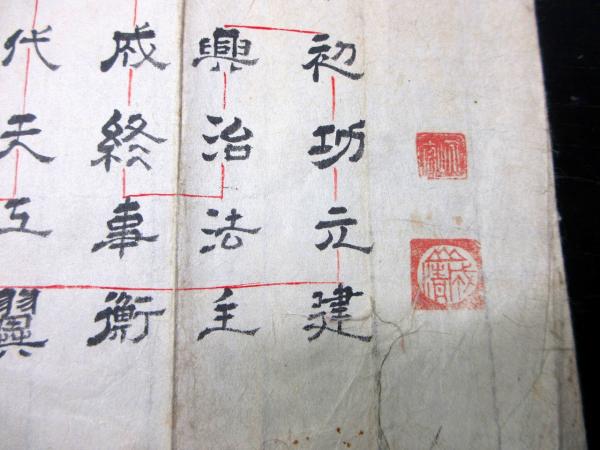 初功立建
興治法主
成終事衡
代天工翼